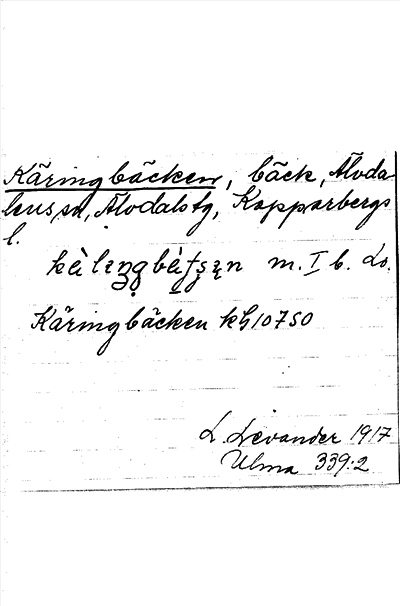 Käringbäcken, bäck, Älvda-
lens sn, Älvdals tg, Kopparbergs
l.
m. I b. Lo.
Käringbäcken kh 10750
L Levander 1917
Ulma 339:2